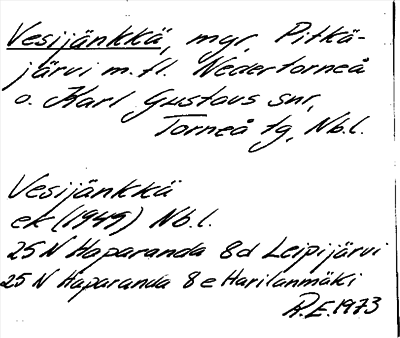 Vesijänkkä, myr, Pitkä-
järvi m. fl. Nedertorneå
o. Karl Gustavs snr,
Torneå tg, Nb.l.
Vesijänkkä
ek (1949) Nb.l.
25 N Haparanda 8d Leipijärvi
25 N Haparanda 8e Harilanmäki
R.E. 1973